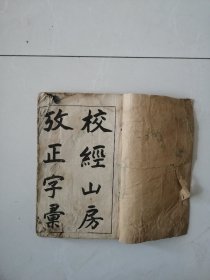 校經山房
攷正字彙